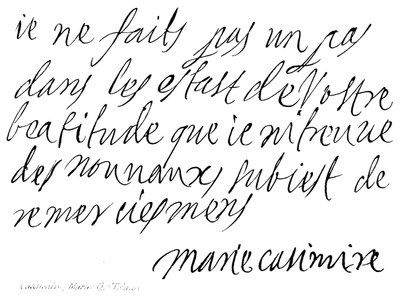 ie ne faits pas un pas
dans les estast de Vostre
beatitude que ie ni treuve
des nouvaux subiest de
remerciesmens
marie casimire
Casimire, Marie